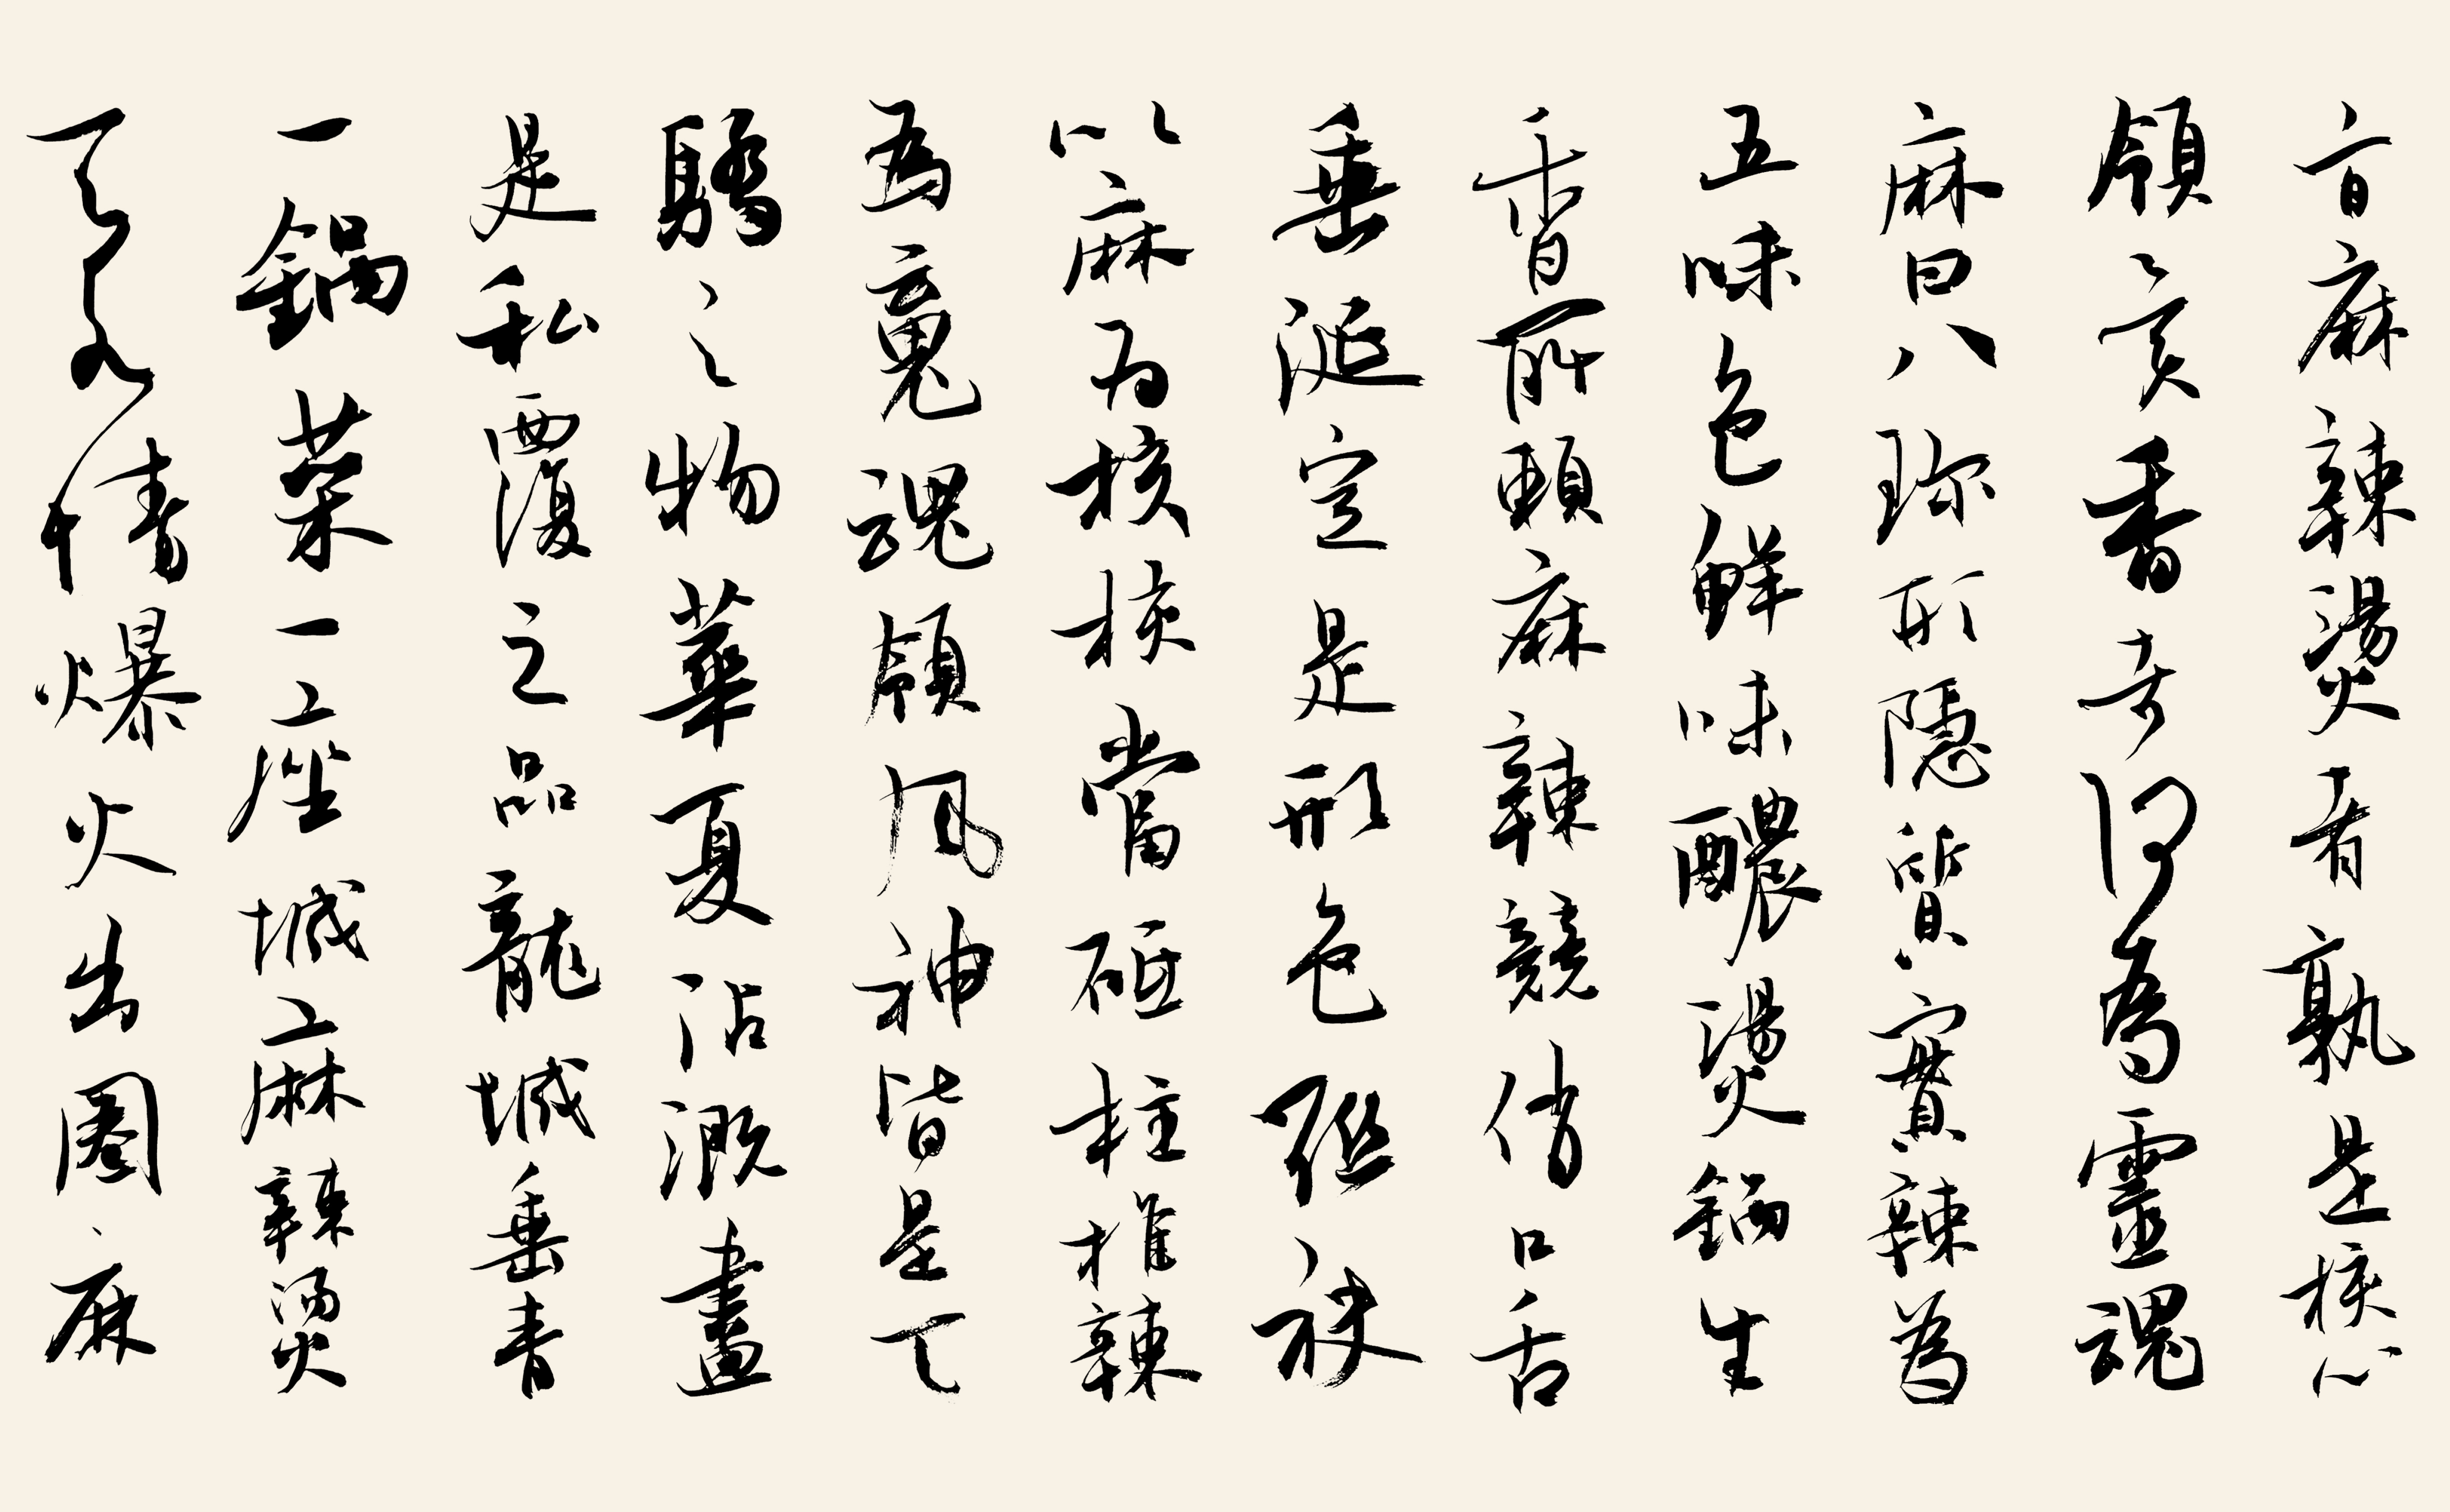 言麻辣燙者孰是核心
領亥香方何為靈魂
麻曰八珍形隱質實辣為
五味色鮮味醲燙鍋生
香所賴麻辣競俏口舌
垂涎定是形色
以麻為核核當砥柱推辣
為䰟魂領風神皆是天
驕之物華夏沾溉盡
是私覆之品龍城垂青
一鍋菜一座城麻辣燙
天水情爆火出圈麻